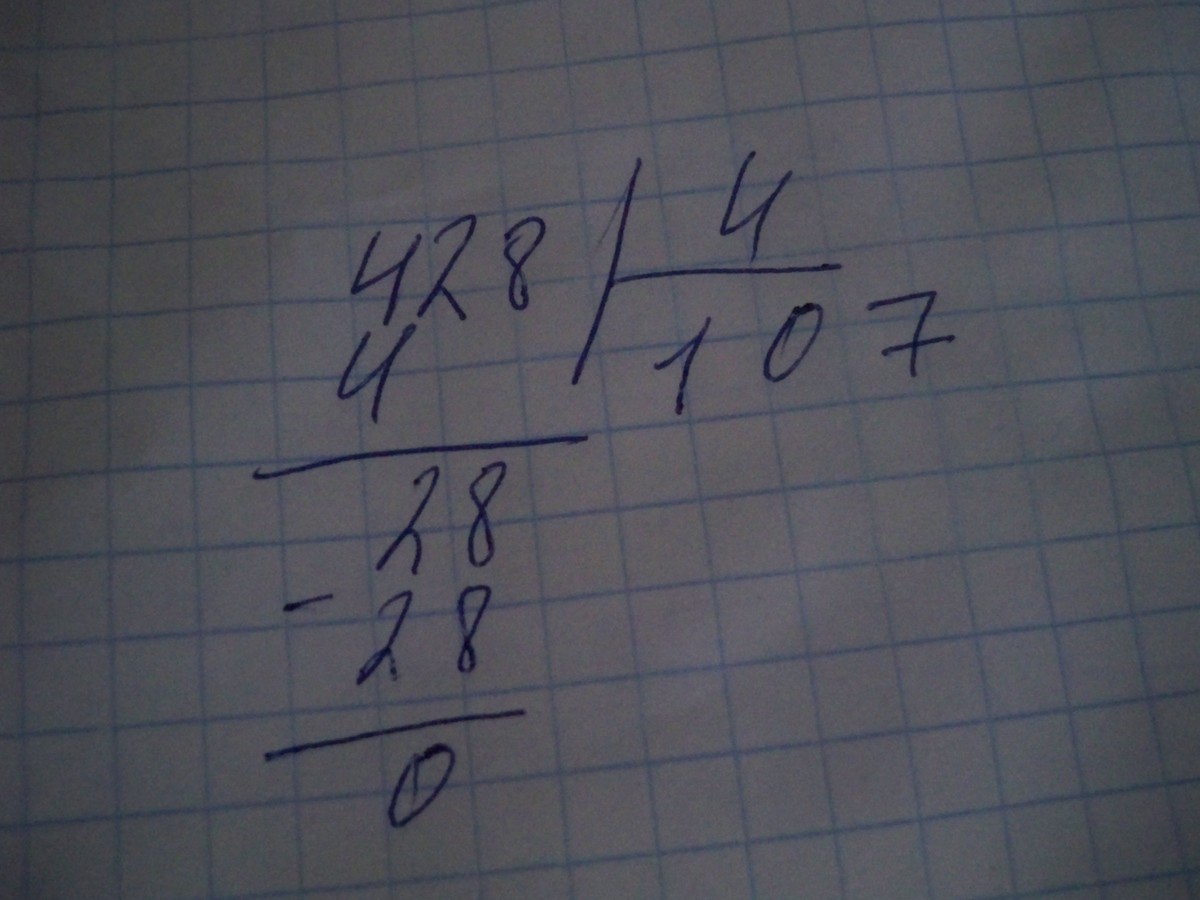 428 4
4 107
28
- 28
0